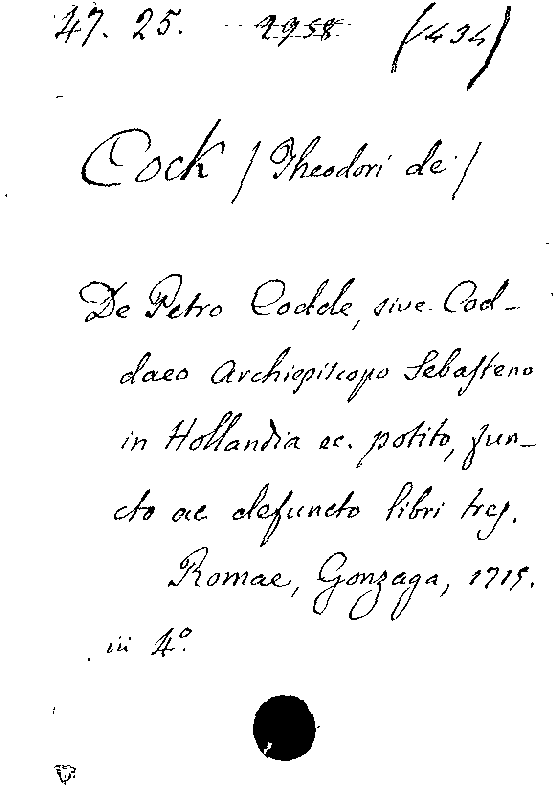 47. 25. 2958 (1434)
Cock / Theodori de /
De Petro Codde, sive Cod-
daeo Archiepiscopo Sebasteno
in Hollandia ec. potito, fun-
cto ac defuncto libri tres.
Romae, Gonzaga, 1715.
in 4º.